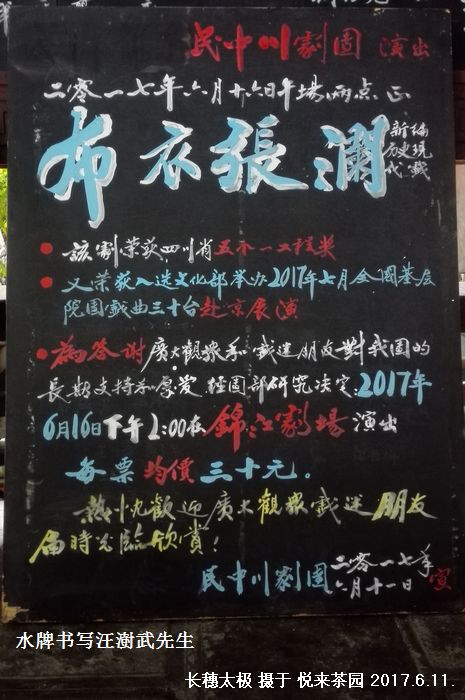 民中川劇團 演出
二零一七年六月十六日午場兩点正
布衣張瀾
新编
历史現
代戲
● 該劇荣获四川省五个一工程奖
● 又荣获入选文化部举办2017年七月全国基层
院團戲曲三十台赴京展演
● 為答谢廣大觀衆和戲迷朋友對我團的
長期支持和厚爱 经團部研究决定:2017年
6月16日下午2:00在錦江劇場演出
每票均價三十元。
热忱歡迎廣大觀眾戲迷朋友
届時光臨欣赏!
民中川劇團 二零一七年
六月十一日 宣
水牌书写汪澍武先生
长穗太极 摄于 悦来茶园 2017.6.11.